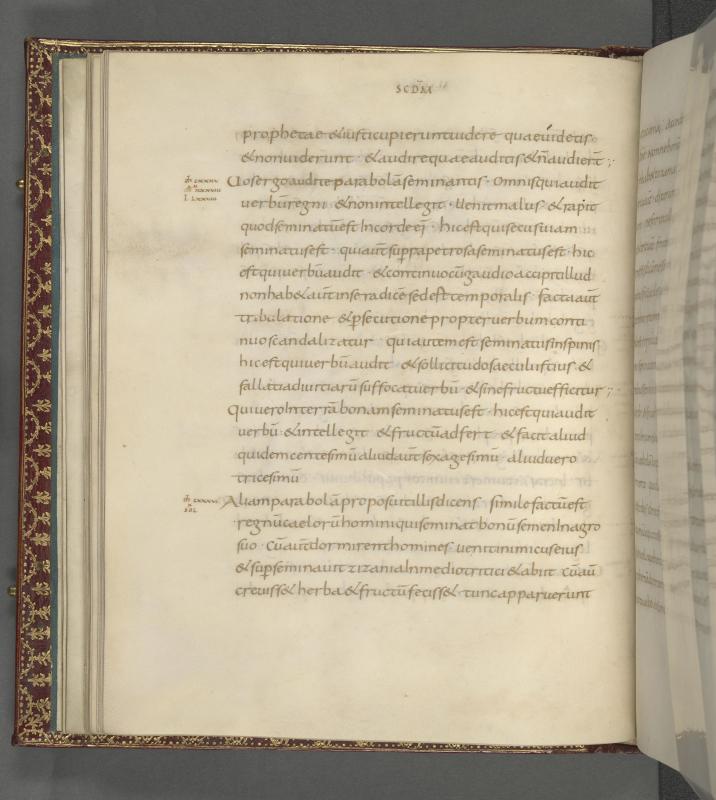 SCDM
prophetae & iusti cupierunt uidere quae uidetis
& non uiderunt · & audire quae auditis & ñ audiert̄ ;
Uos ergo audite parabolā seminantis · Omnis qui audit
uerbū regni & non intellegit · Uenit malus & rapit
quod seminatū est In corde eĵ · hic est qui secus uiam
seminatus est · qui aut̄ sup̄ petrosa seminatus est · hic
est qui uerbū audit & continuo cū gaudio accipit illud
non hab& aut̄ in se radicē sed est temporalis · facta aut̄
tribulatione & p̄secutione propter uerbum conti
nuo scandalizatur · qui autem est seminatus in spinis
hic est qui uerbū audit & sollicitudo saeculi istius &
fallatia diuitiarū suffocat uerbū & sine fructu efficitur ;
Qui uero In terrā bonam seminatus est · hic est qui audit
uerbū & intellegit & fructū adfert & facit aliud
quidem centesimū aliud aut̄ sexagesimū · aliud uero
tricesimū
Aliam parabolā proposuit illis dicens simile factū est
regnū caelorū homini qui seminat bonū semen In agro
suo · Cū aut̄ dormirent homines uenit inimicus eius
& sup̄seminauit zizania In medio tritici & abiit · Cū aū
creuiss& herba & fructū feciss& · tunc apparuerunt